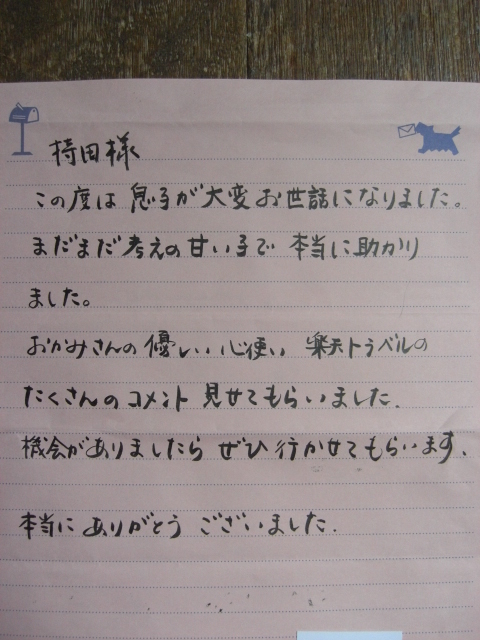 持田様
この度は 息子が大変お世話になりました。
まだまだ考えの甘い子で 本当に助かり
ました。
おかみさんの優しい心使い 楽天トラベルの
たくさんのコメント 見せてもらいました.
機会がありましたら ぜひ行かせてもらいます、
本当に ありがとう ございました.